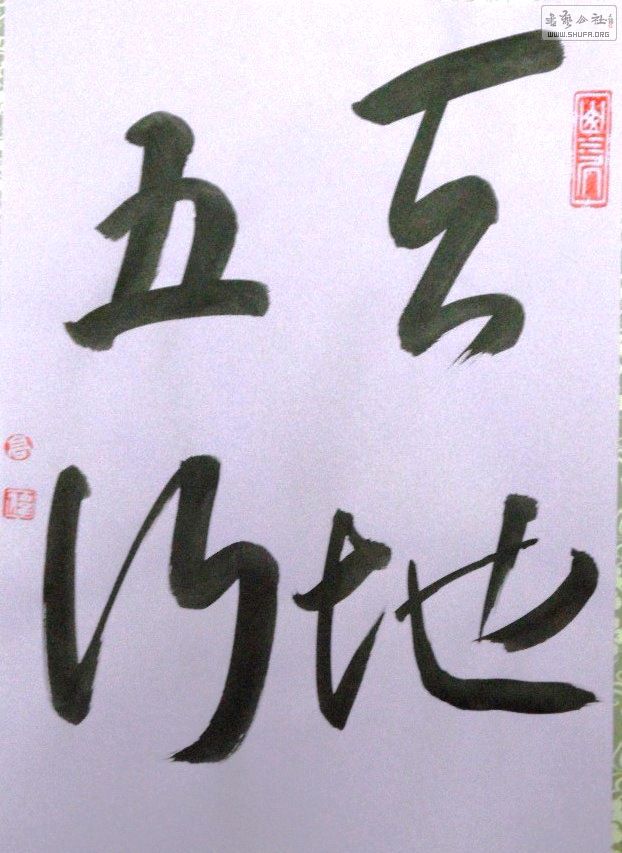 天地
五行
书藝公社
WWW.SHUFA.ORG